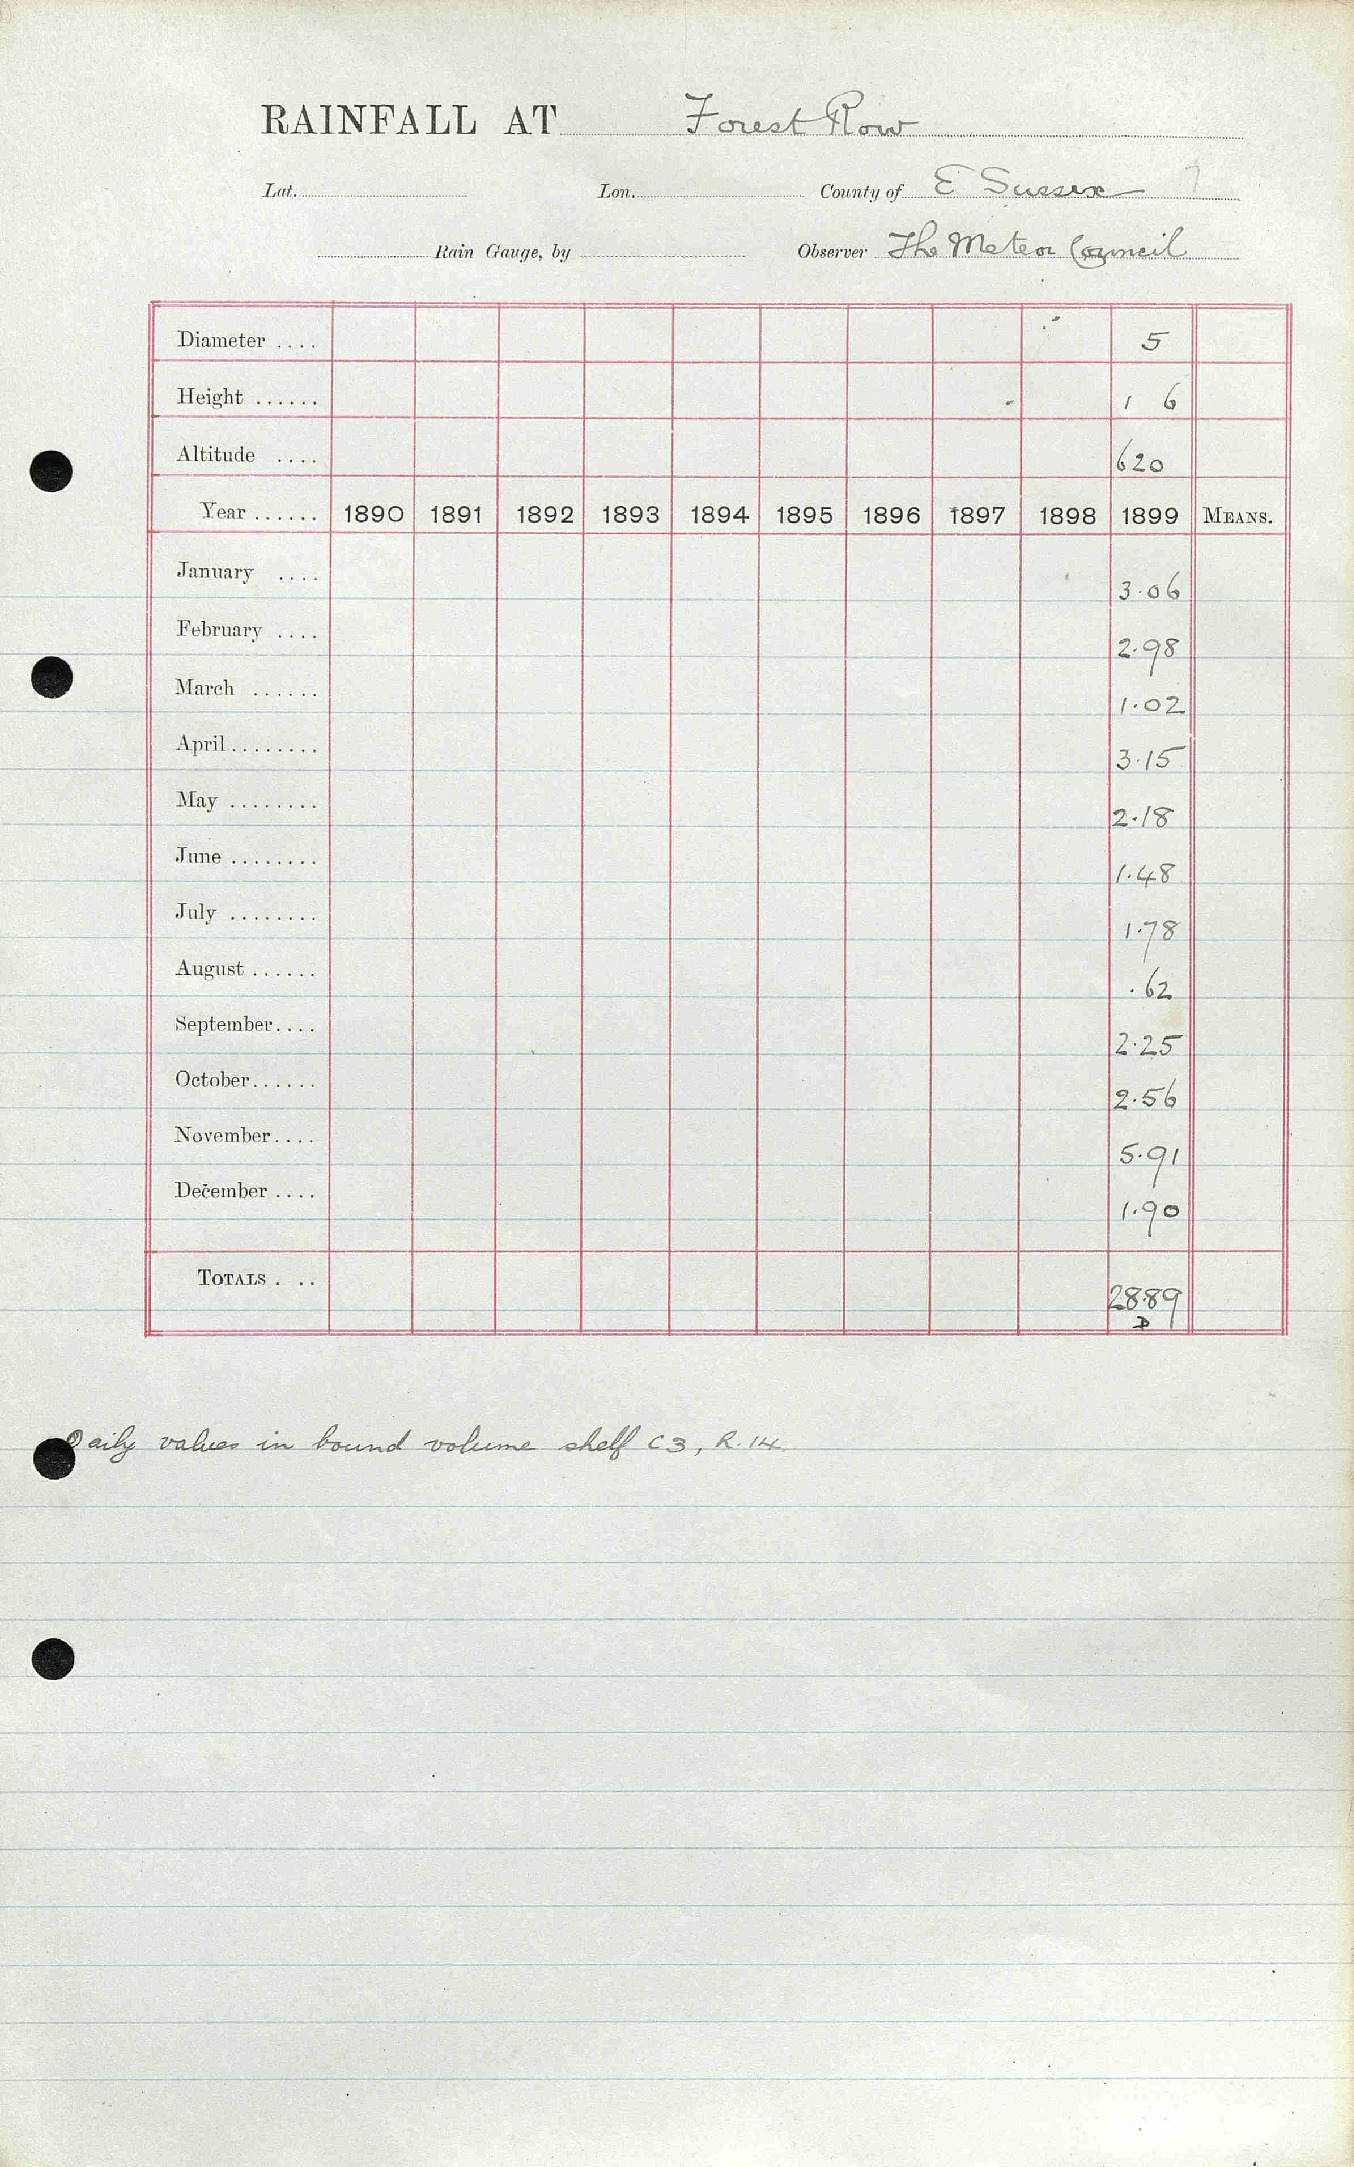 RAINFALL AT Forest Row
Lat. Lon. County of E Sussex 7
Rain Gauge, by Observer The Meteor Council
Diameter .... 5
Height ...... 1 6
Altitude .... 620
Year ...... 1890 1891 1892 1893 1894 1895 1896 1897 1898 1899 MEANS.
January .... 3.06
February .... 2.98
March ...... 1.02
April ........ 3.15
May ........ 2.18
June ........ 1.48
July ........ 1.78
August ...... .62
September.... 2.25
October...... 2.56
November.... 5.91
December .... 1.90
TOTALS . .. 28.89
D
Daily values in bound volume shelf C3, R.14.